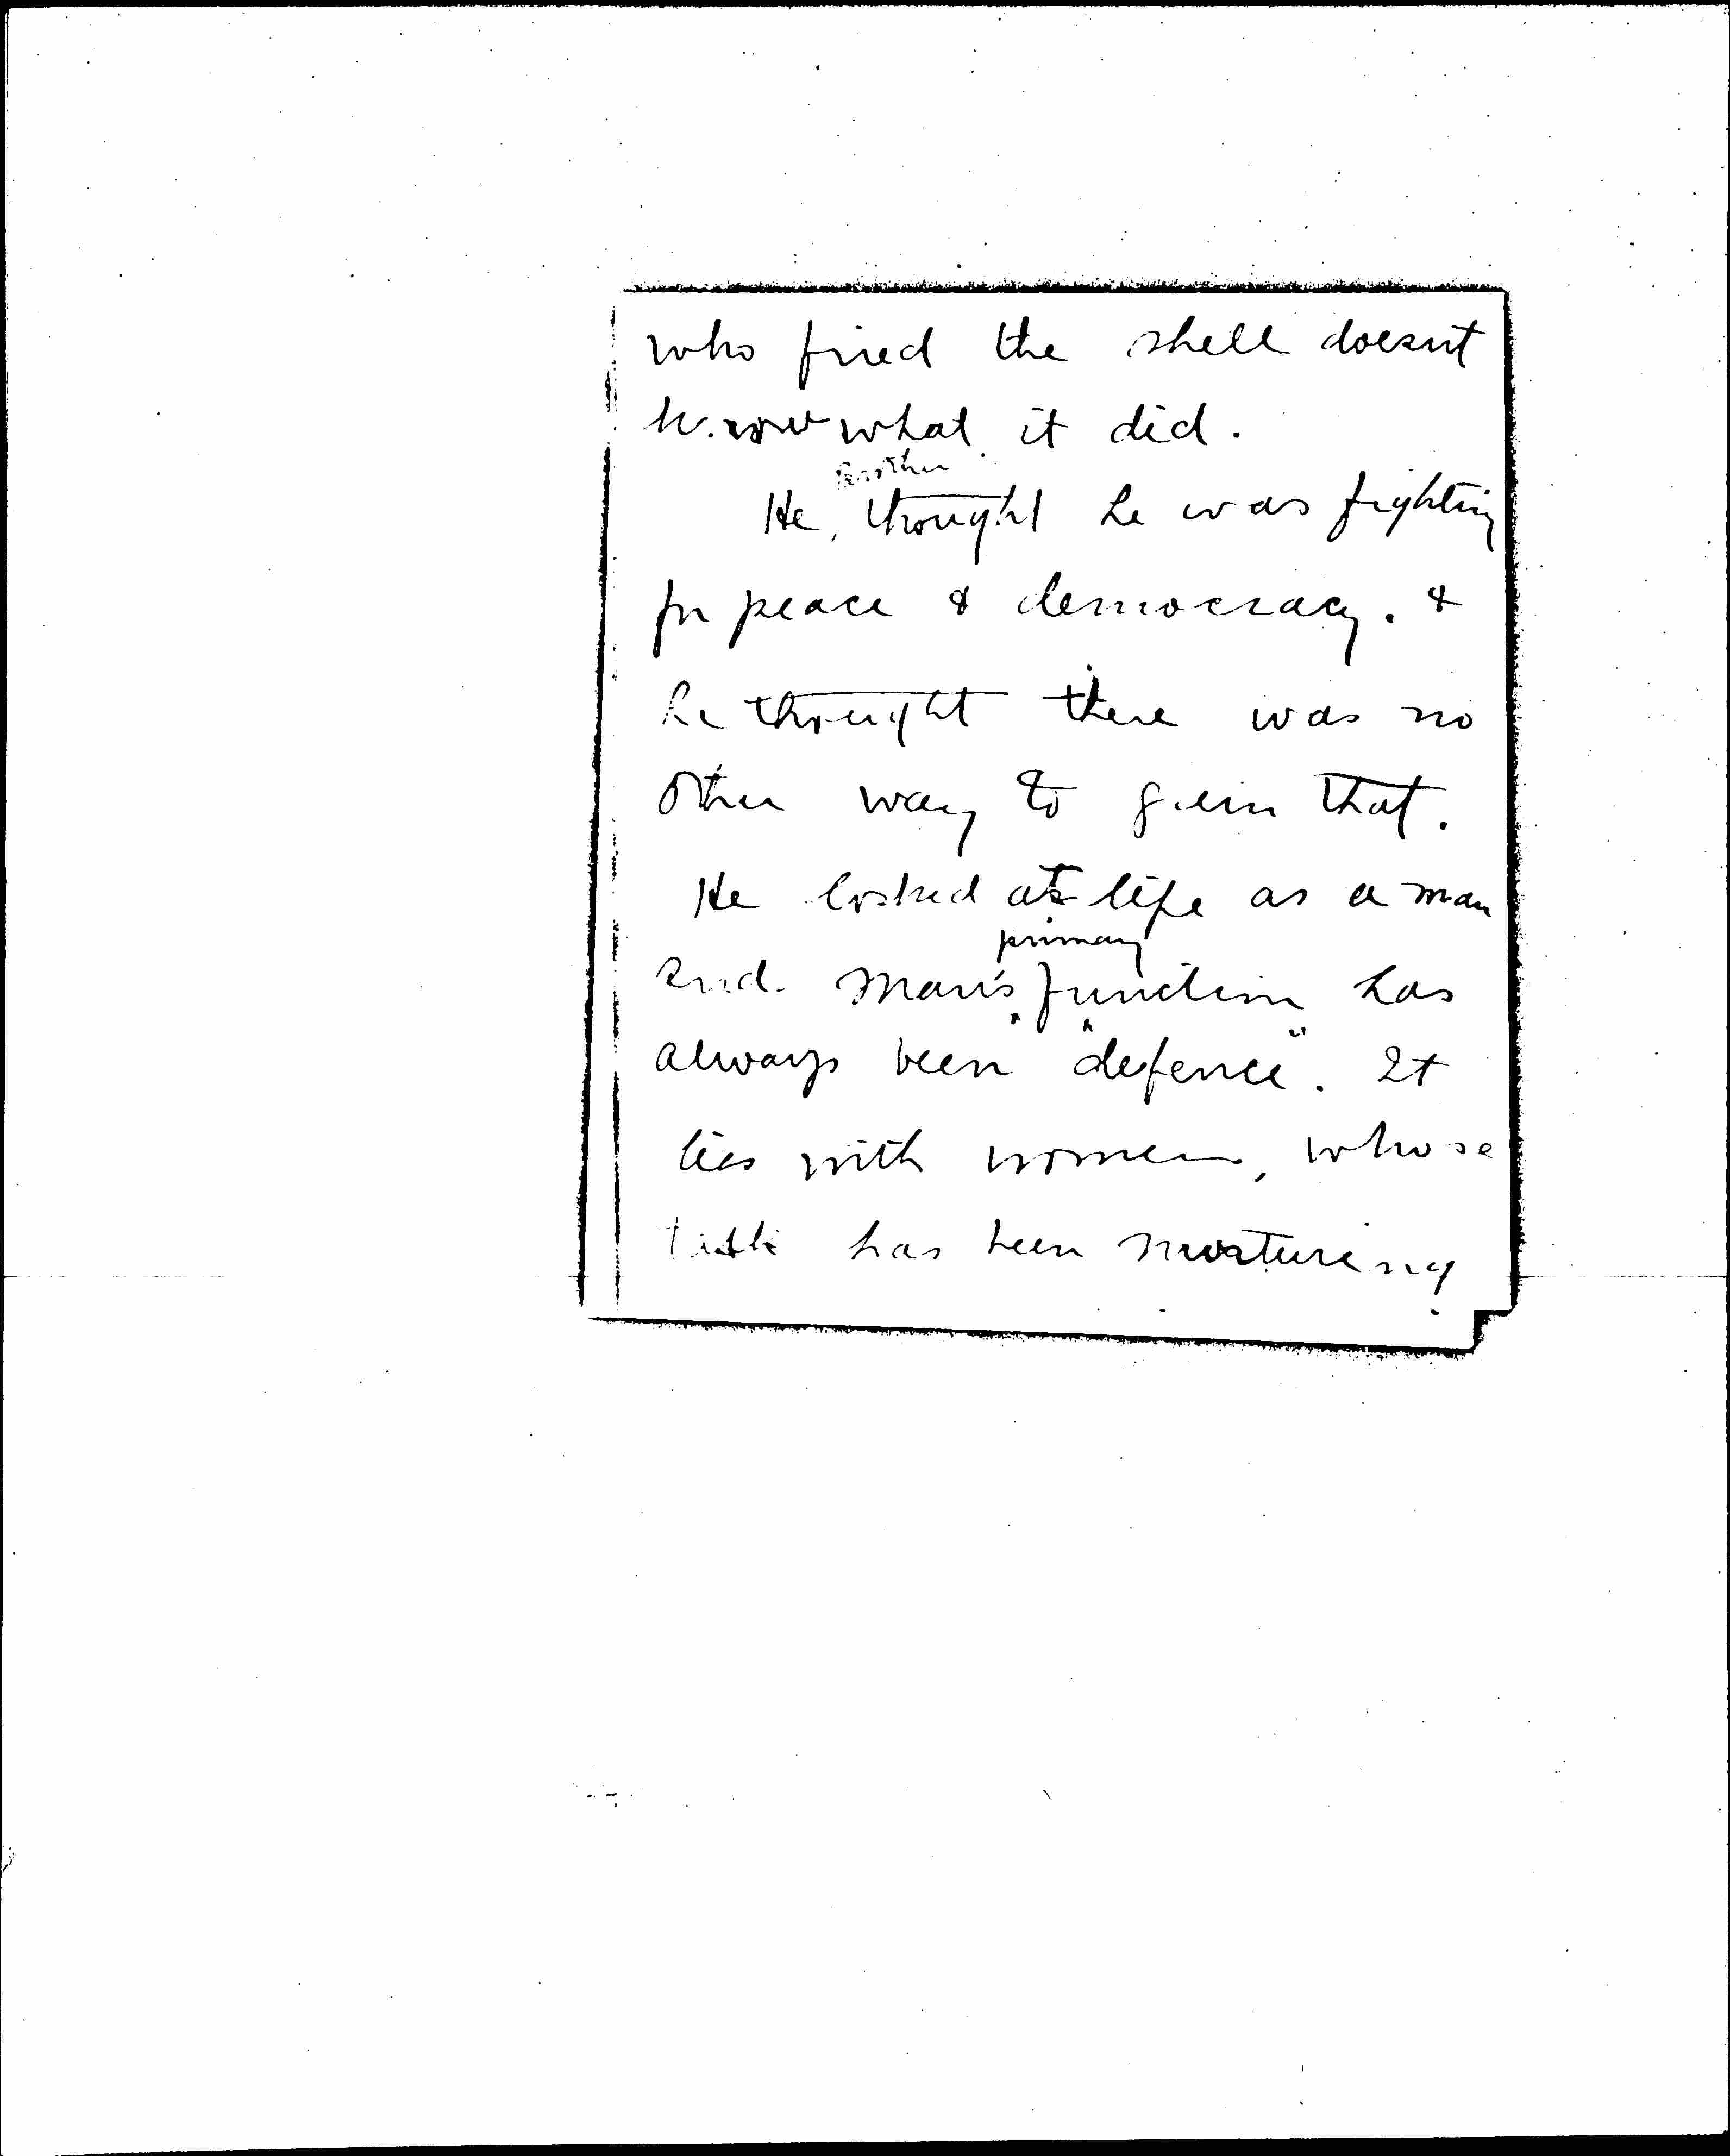 who fired the shell doesnt
know what it did.
He, thought he was fighting
for peace & democracy. &
he thought there was no
other way to gain that.
He looked at life as a man
primary
and man's function has
always been "defence". It
lies with women, whose
task has been nurturing